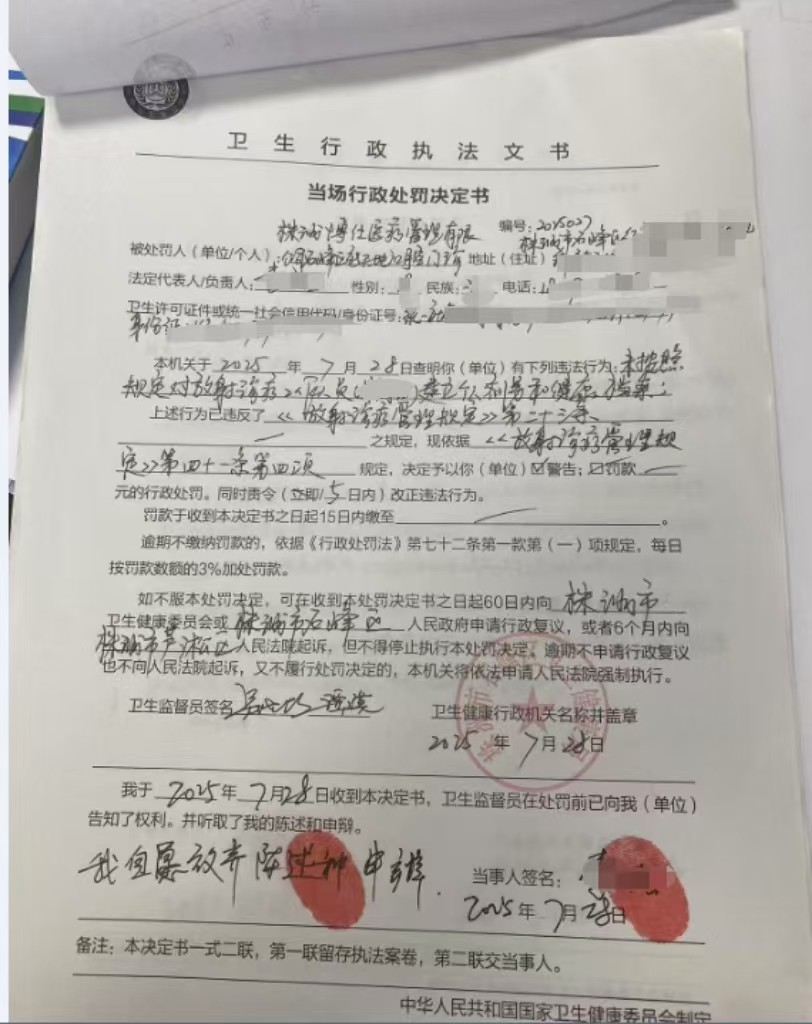 卫生行政执法文书
当场行政处罚决定书
编号：2025027
株洲博仕医疗管理有限
被处罚人（单位/个人）：公司石峰区 口腔门诊 地址（住址） 株洲市石峰区
法定代表人/负责人： 性别： 民族： 电话：
卫生许可证件或统一社会信用代码/身份证号：
身份证：
本机关于 2025 年 7 月 28 日查明你（单位）有下列违法行为：未按照
规定对放射诊疗工作人员 建立个人剂量和健康档案；
上述行为已违反了《放射诊疗管理规定》第二十三条
之规定，现依据《放射诊疗管理规
定》第四十一条第四项 规定，决定予以你（单位）☑警告；☐罚款
元的行政处罚。同时责令（立即/5日内）改正违法行为。
罚款于收到本决定书之日起15日内缴至 。
逾期不缴纳罚款的，依据《行政处罚法》第七十二条第一款第（一）项规定，每日
按罚款数额的3%加处罚款。
如不服本处罚决定，可在收到本处罚决定书之日起60日内向 株洲市
卫生健康委员会或 株洲市石峰区 人民政府申请行政复议，或者6个月内向
株洲市芦淞区人民法院起诉，但不得停止执行本处罚决定。逾期不申请行政复议
也不向人民法院起诉，又不履行处罚决定的，本机关将依法申请人民法院强制执行。
卫生监督员签名 卫生健康行政机关名称并盖章
2025 年 7 月 28 日
我于 2025 年 7 月 28 日收到本决定书，卫生监督员在处罚前已向我（单位）
告知了权利。并听取了我的陈述和申辩。
我自愿放弃陈述和申辩.
当事人签名：
2025 年 7 月 28 日
备注：本决定书一式二联，第一联留存执法案卷，第二联交当事人。
中华人民共和国国家卫生健康委员会制定